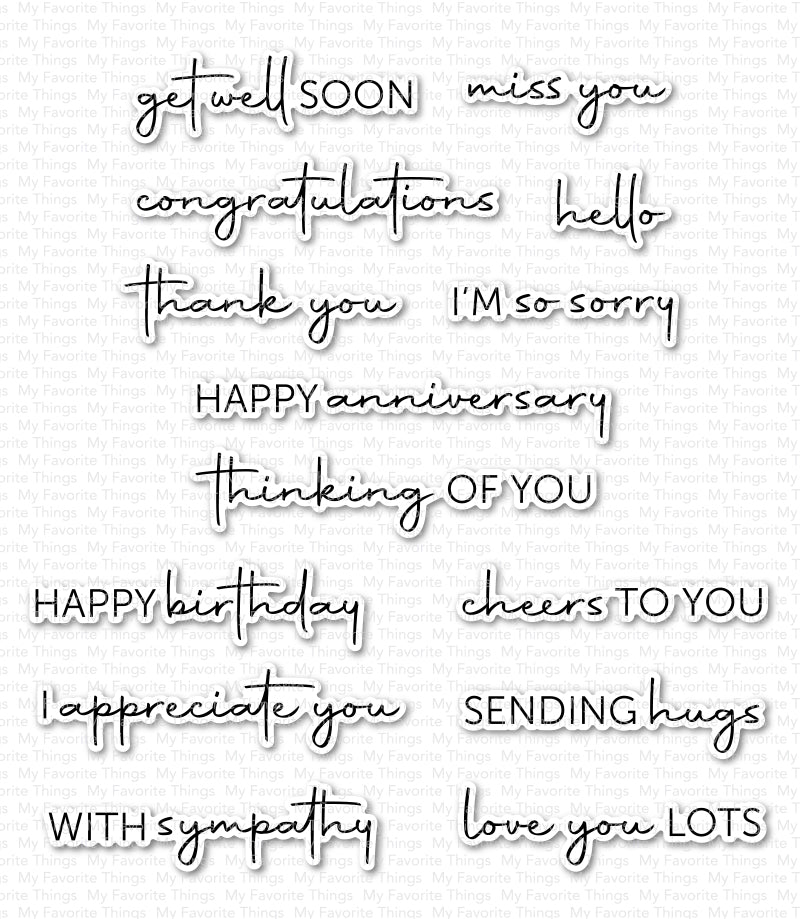 get well SOON
miss you
congratulations
hello
thank you
I'M so sorry
HAPPY anniversary
thinking OF YOU
HAPPY birthday
cheers TO YOU
I appreciate you
SENDING hugs
WITH sympathy
love you LOTS
My Favorite Things